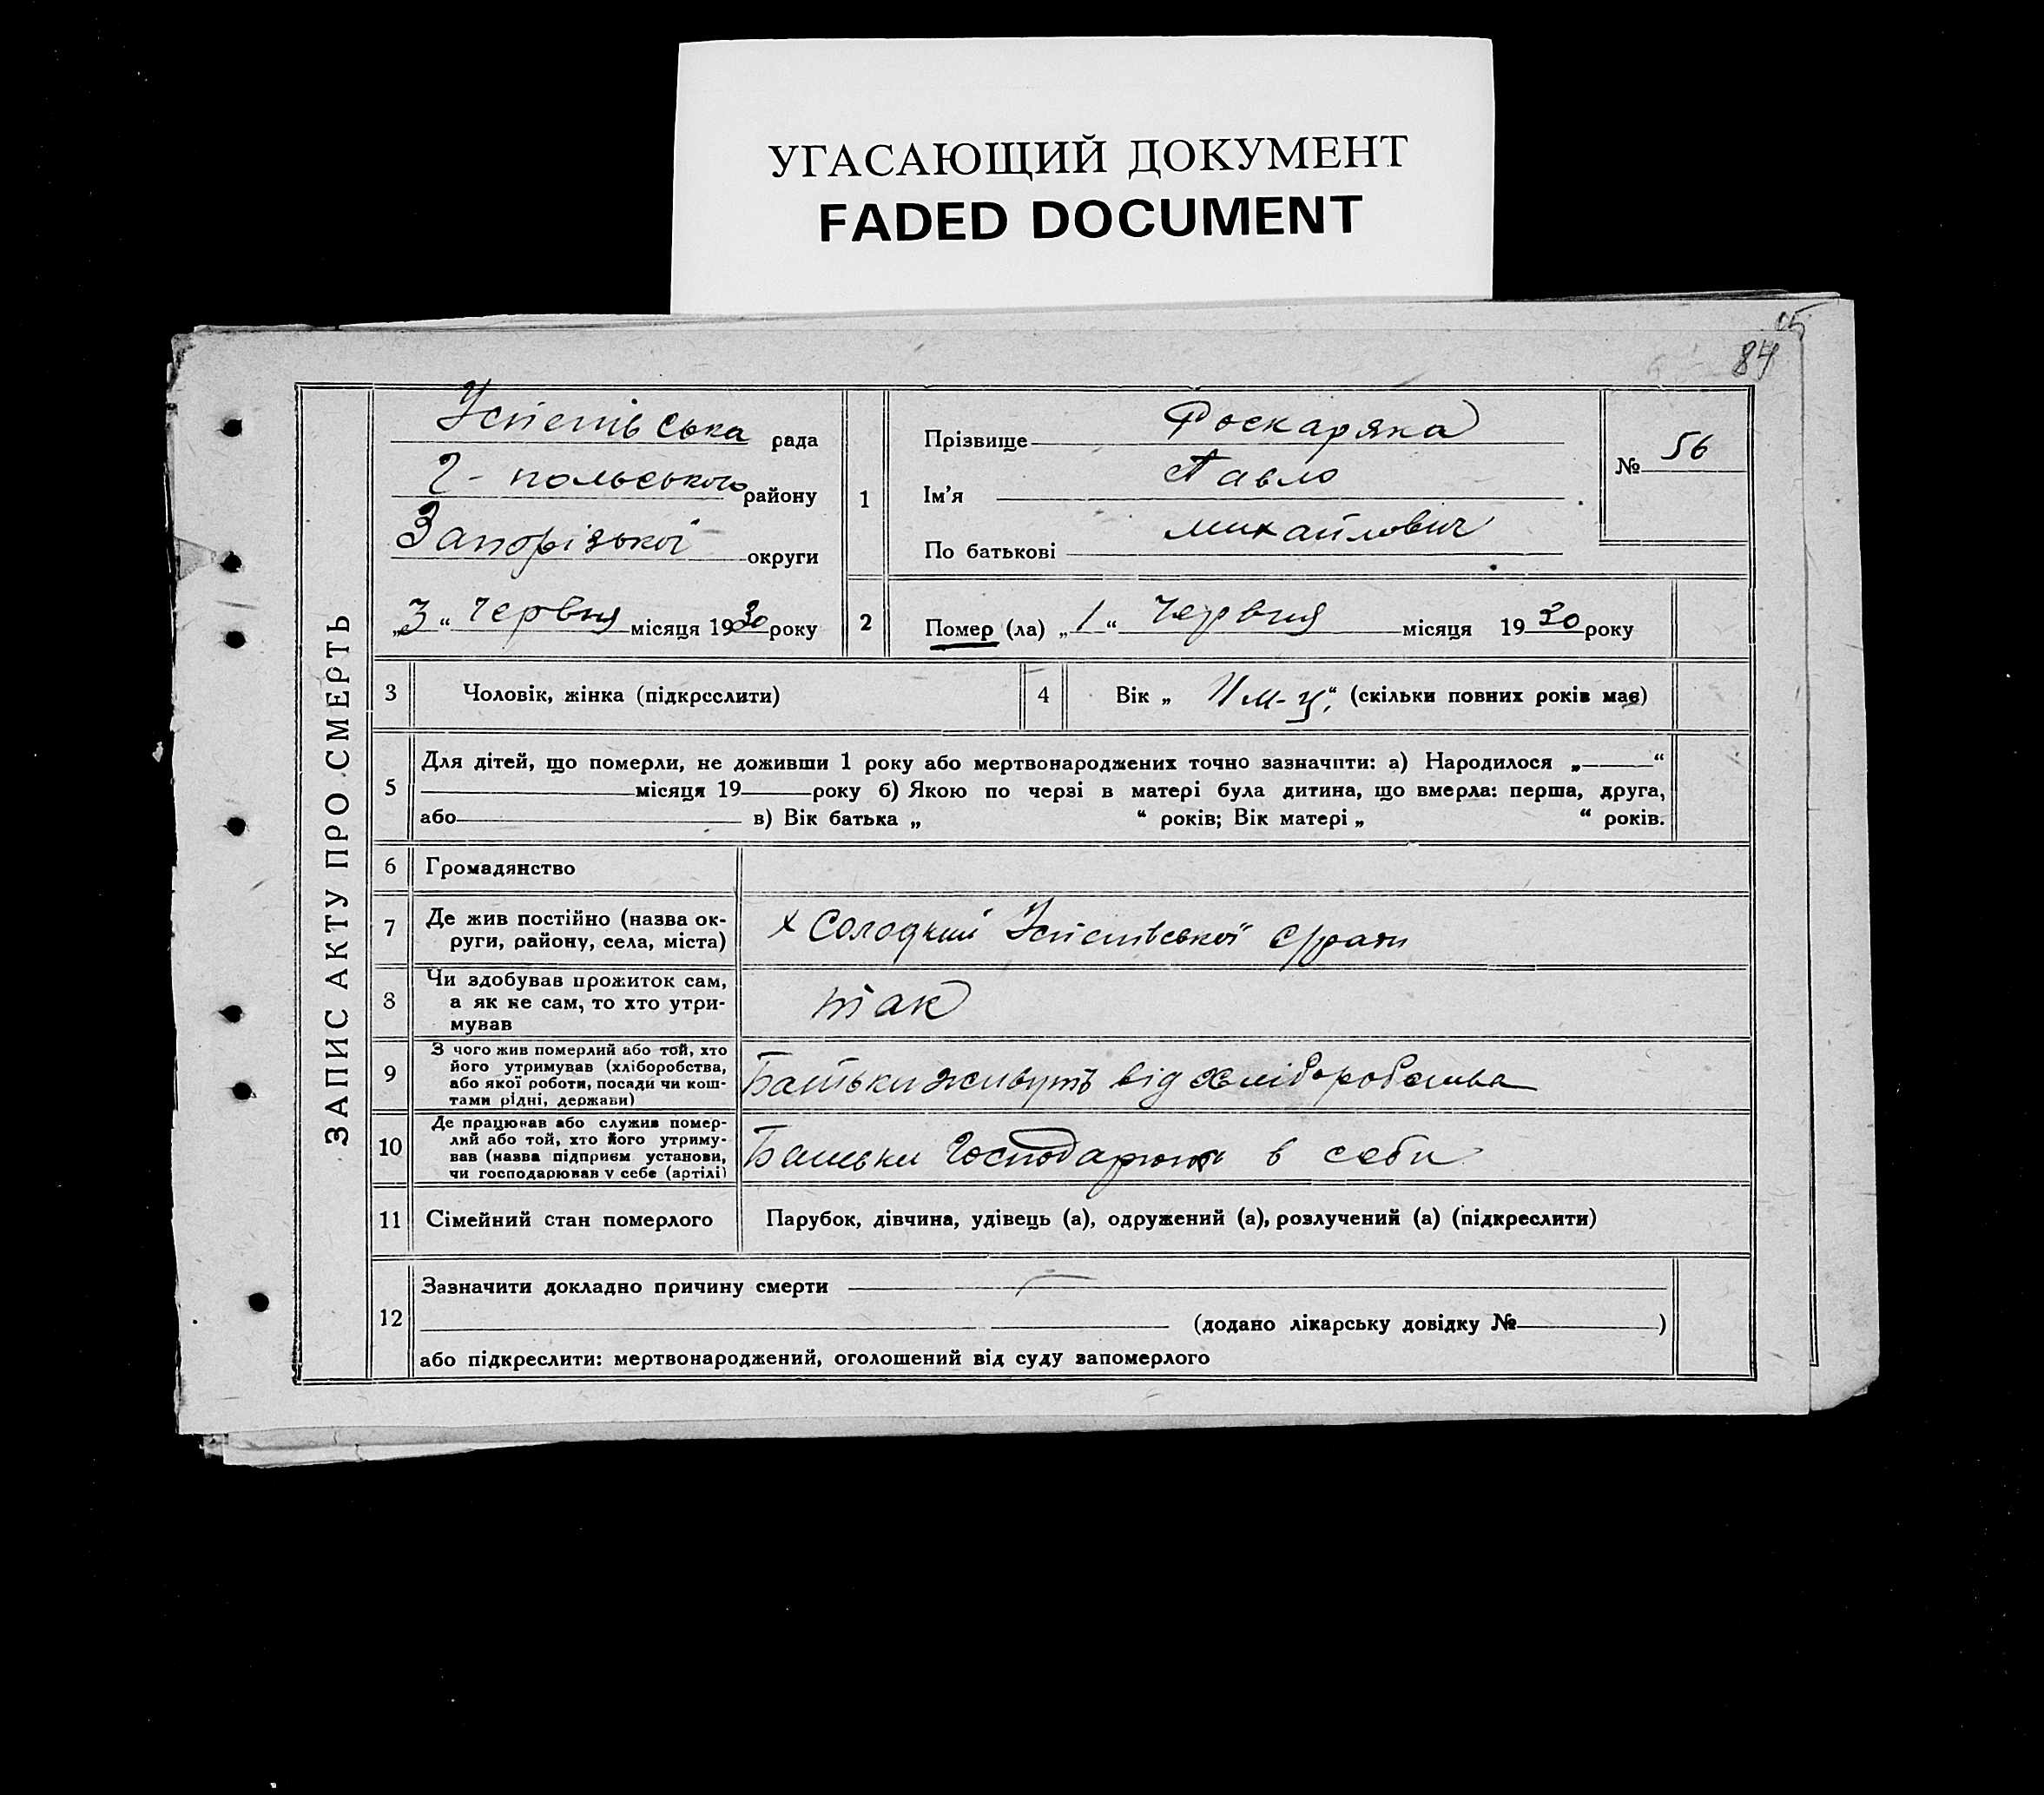 УГАСАЮЩИЙ ДОКУМЕНТ
FADED DOCUMENT
84
ЗАПИС АКТУ ПРО СМЕРТЬ
Успенівська рада
Г-польського району
Запорізької округи
„3“ червня місяця 1930 року
1
Прізвище Роскаряка
Ім'я Павло
По батькові Михайлович
№ 56
2
Помер (ла) „1“ червня місяця 1930 року
3 Чоловік, жінка (підкреслити)
4 Вік „11 м-ц“, (скільки повних років має)
5
Для дітей, що померли, не доживши 1 року або мертвонароджених точно зазначити: а) Народилося „ “
місяця 19 року б) Якою по черзі в матері була дитина, що вмерла: перша, друга,
або в) Вік батька „ “ років; Вік матері „ “ років.
6 Громадянство
7
Де жив постійно (назва ок-
руги, району, села, міста)
х Солодкий Успенівської с/ради
8
Чи здобував прожиток сам,
а як не сам, то хто утри-
мував
так
9
З чого жив померлий або той, хто
його утримував (хліборобства,
або якої роботи, посади чи кош-
тами рідні, держави)
Батьки живуть від хліборобства
10
Де працював або служив помер-
лий або той, хто його утриму-
вав (назва підприєм установи,
чи господарював у себе (артілі)
Батьки господарюють в себи
11 Сімейний стан померлого
Парубок, дівчина, удівець (а), одружений (а), розлучений (а) (підкреслити)
12
Зазначити докладно причину смерти
(додано лікарську довідку № )
або підкреслити: мертвонароджений, оголошений від суду запомерлого